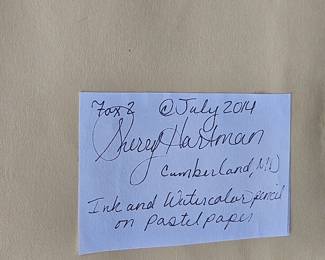 Fox 2 © July 2014
Sherry Hartman
Cumberland, MD
Ink and Watercolor pencil
on pastel paper